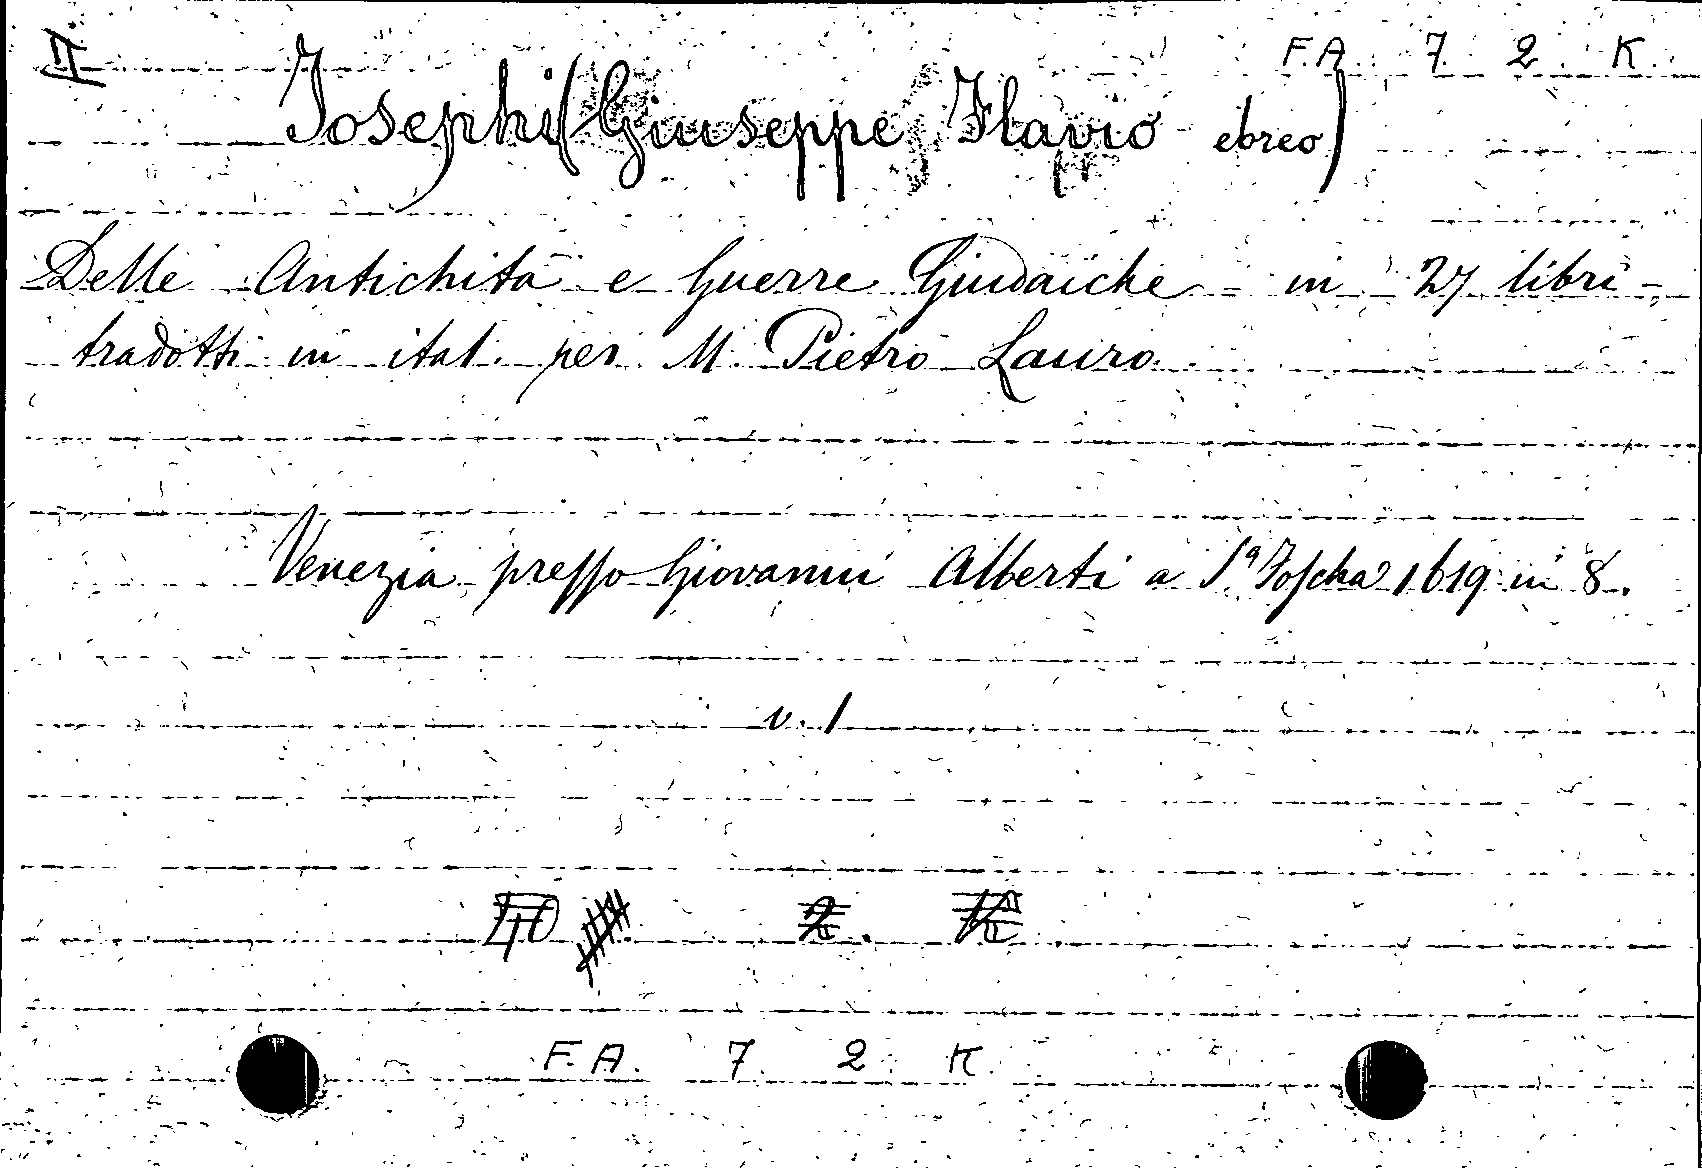 II F.A. 7 2 K.
Josephi (Giuseppe Flavio ebreo)
Delle Antichità e Guerre Giudaiche - in 27 libri -
tradotti in ital. per M. Pietro Lauro.
Venezia presso Giovanni Alberti a Sa Foscha 1619 in 8.
v. 1
2. K
F.A. 7 2 K.